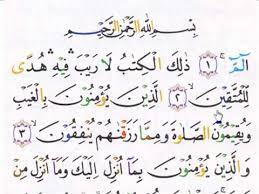 بِسْمِ اللهِ الرَّحْمٰنِ الرَّحِيْمِ
الٓمّٓ ۝١ ذٰلِكَ الْكِتٰبُ لَا رَيْبَ فِيْهِ هُدًى
لِّلْمُتَّقِيْنَ ۝٢ الَّذِيْنَ يُؤْمِنُوْنَ بِالْغَيْبِ
وَيُقِيْمُوْنَ الصَّلٰوةَ وَمِمَّا رَزَقْنٰهُمْ يُنْفِقُوْنَ ۝٣
وَالَّذِيْنَ يُؤْمِنُوْنَ بِمَآ اُنْزِلَ اِلَيْكَ وَمَآ اُنْزِلَ مِنْ